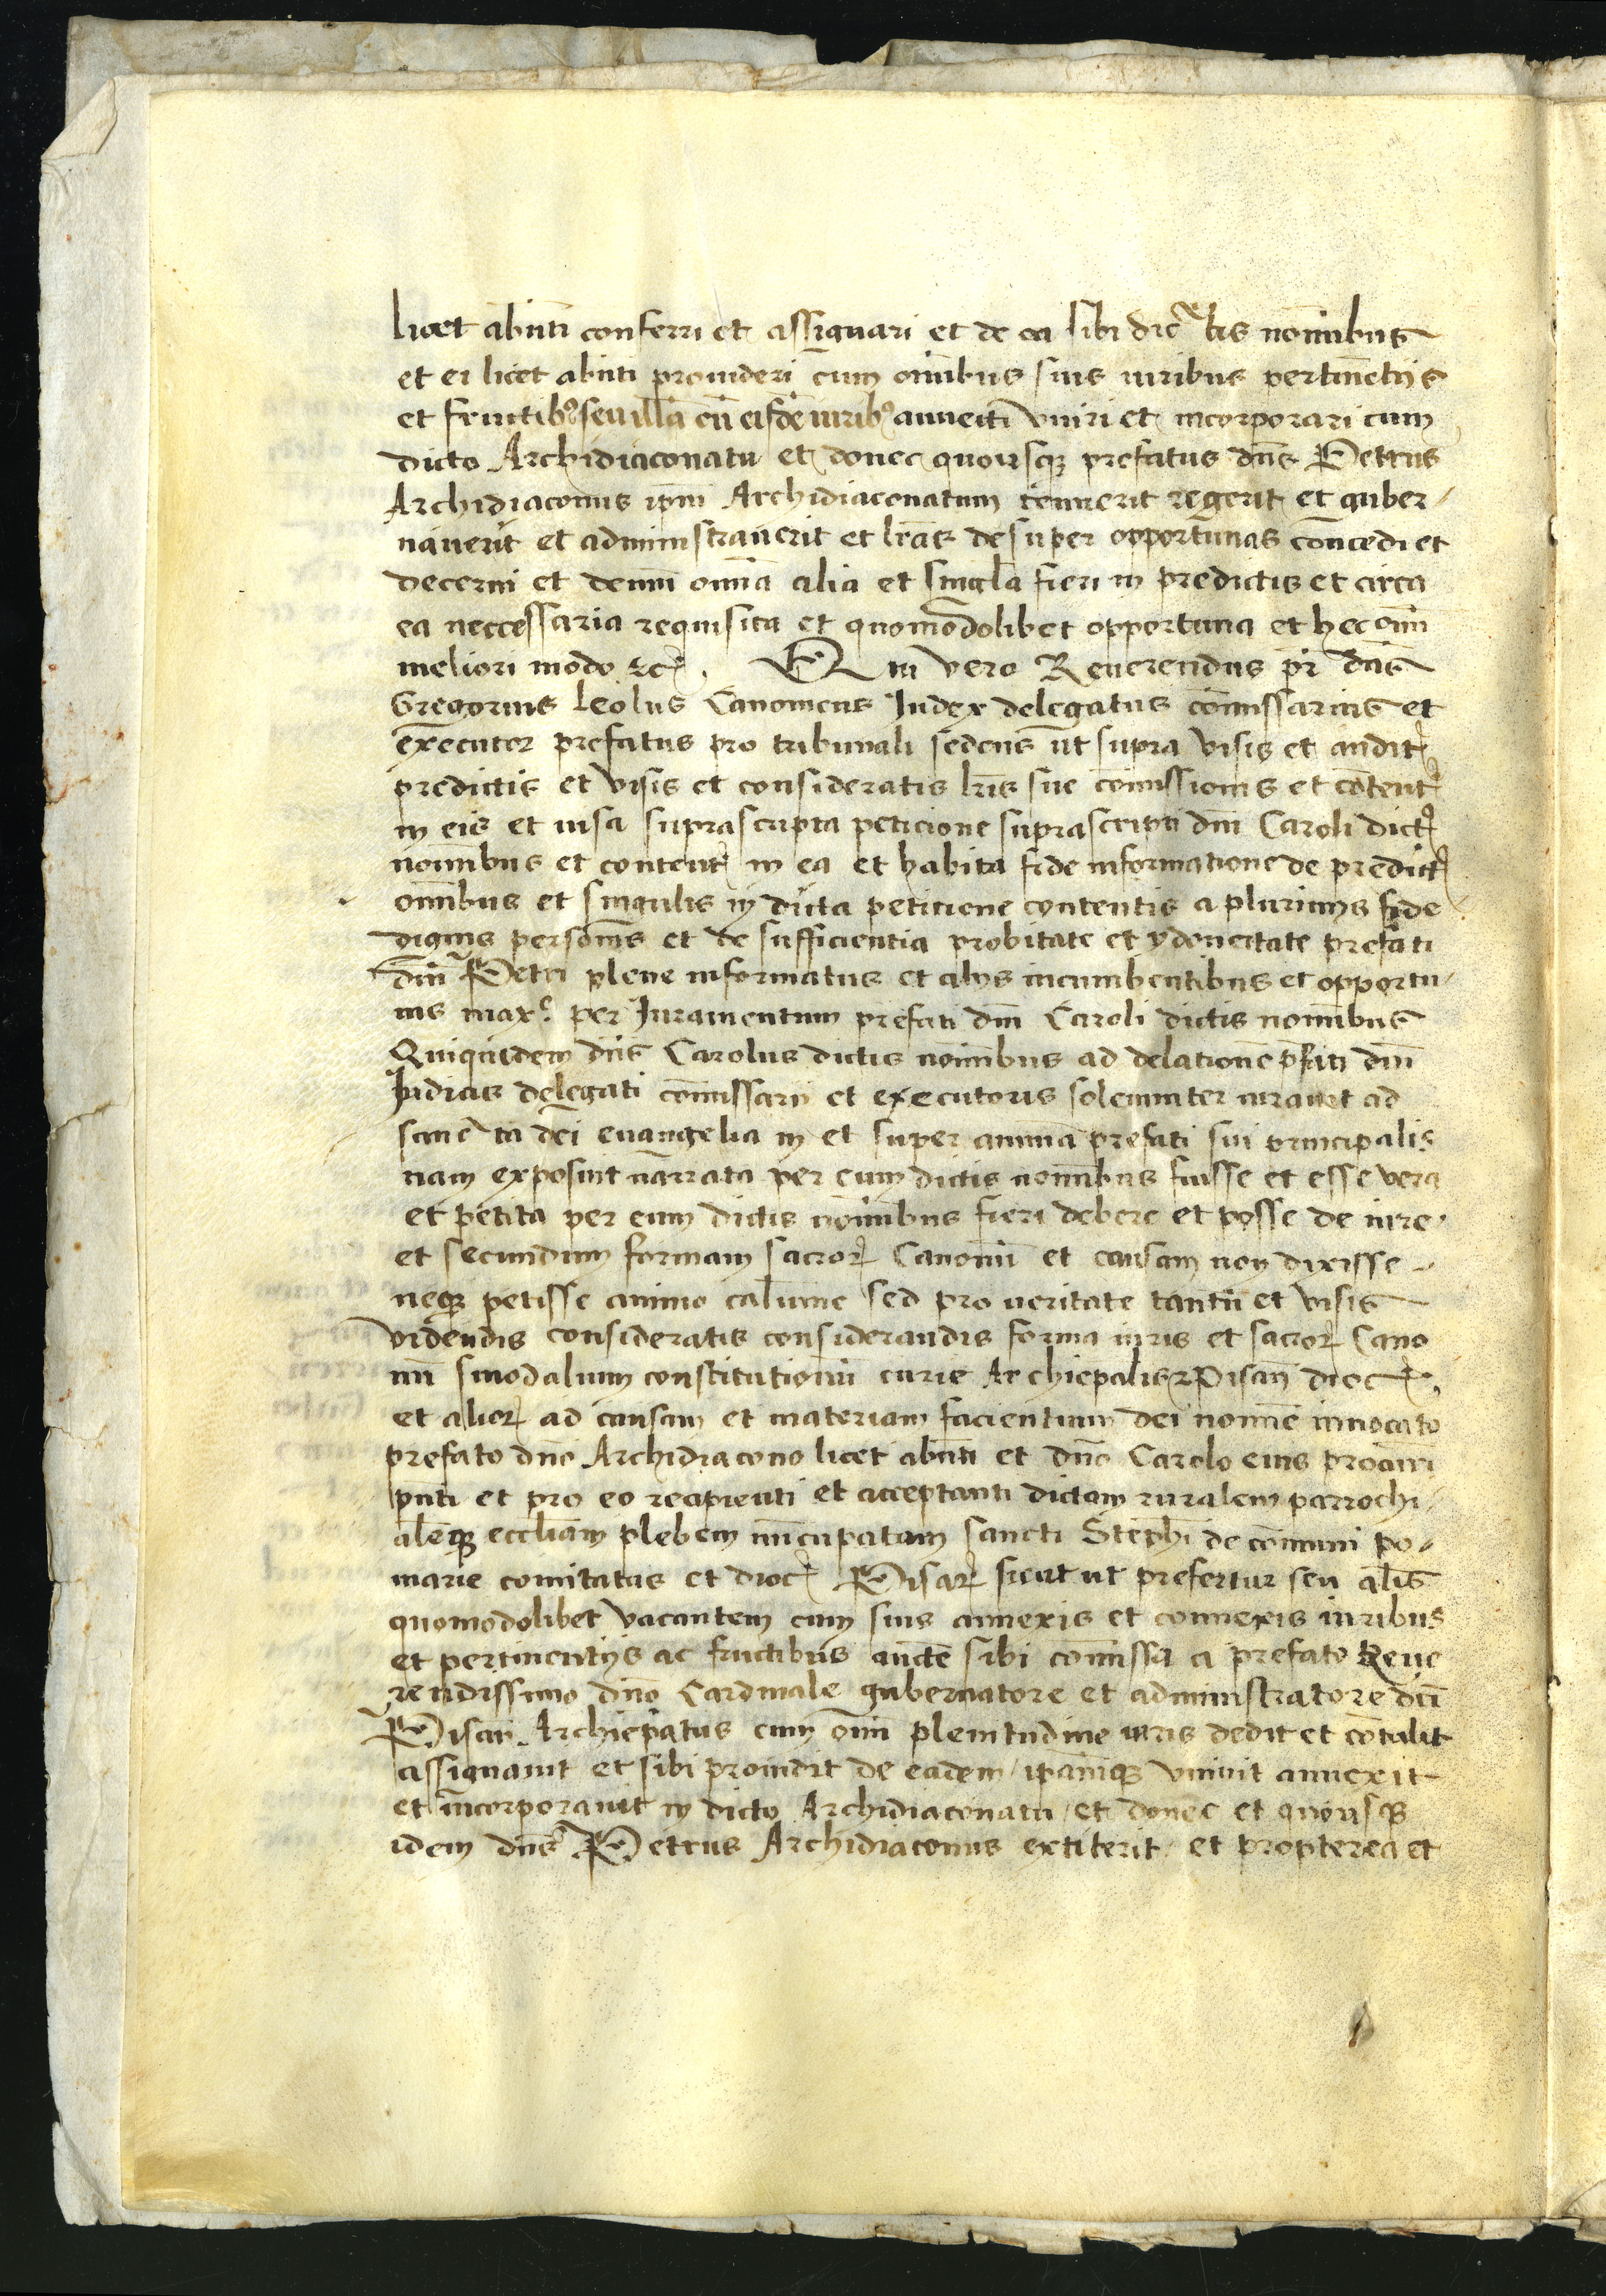 licet abn̄ti conferri et assignari et de ea sibi dictis nōīībus
et ei licet abn̄ti prouideri cum om̄ibus suis iuribus pertinētijs
et fructib⁹ seu illā cū eisdē iurib⁹ annecti vniri et incorporari cum
dicto Archidiaconatu et donec quousq̨ prefatus dn̄s Petrus
Archidiaconus ip̄m Archidiaconatum tenuerit regerit et guber-
nauerit et administrauerit et lr̄as desuper opportunas concedi et
decerni et demū omīa alia et singula fieri in predictis et circa
ea neccessaria requisita et quomodolibet opportuna et hec om̄i
meliori modo ⁊c̄. Qui vero Reuerendus pr̄ dn̄s
Gregorius Leolus Canonicus Iudex delegatus com̄issarius et
executor prefatus pro tribunali sedens ut supra visis et audit̄
predictis et visis et consideratis lr̄is sue com̄issionis et cōtent̄
in eis et uisa suprascripta peticione suprascripti dn̄i Caroli dict̄
nom̄ībus et content̄ in ea et habita fide informatione de predict̄
om̄ībus et singulis in dicta peticione contentis a plurimis fide
dignis personis et de sufficientia probitate et ydoneitate prefati
dn̄i Petri plene informatus et alijs incumbentibus et opportu-
nis max.ᵉ per Iuramentum prefati dn̄i Caroli dictis nom̄ībus
Quiquidem dn̄s Carolus dictis nom̄ībus ad delationē p̄fati dn̄i
Iudicis delegati com̄issarij et executoris solemniter iurauit ad
sancta dei euangelia in et super animā prefati sui principalis
nam exposuit narrata per eum dictis nom̄ībus fuisse et esse vera
et petita per eum dictis nom̄ībus fieri debere et posse de iure
et secundum formam sacror̨ Canonū et causam non dixisse
neq̨ petisse animo calumne sed pro ueritate tantū et visis
videndis consideratis considerandis forma iuris et sacror̨ Cano
nū sinodalium constitutionū curie Archiep̄alis Pisan̄ dioc̄
et alior̨ ad causam et materiam facientium dei nomīe inuocato
prefato dn̄o Archidiacono licet abn̄ti et dn̄o Carolo eius procuri
pn̄ti et pro eo recipienti et acceptanti dictam ruralem parrochi-
alēq̨ eccl̄iam plebem nūcupatam sancti Steph̄i de comuni po-
marie comitatus et dioc̄ Pisar̄ sicut ut prefertur seu al̄is
quomodolibet vacantem cum suis annexis et connexis iuribus
et pertinentijs ac fructibus auctē sibi com̄issa a prefato Reue
rendissimo dn̄o Cardinale gubernatore et administratore dc̄i
Pisan̄ Archiep̄atus cum om̄i plenitudine iuris dedit et cōtulit
assignauit et sibi prouidit de eadem ip̄amq̨ vniuit annexit
et incorporauit in dicto Archidiaconatu et donec et quousq̨
idem dn̄s Petrus Archidiaconus extiterit et propterea et